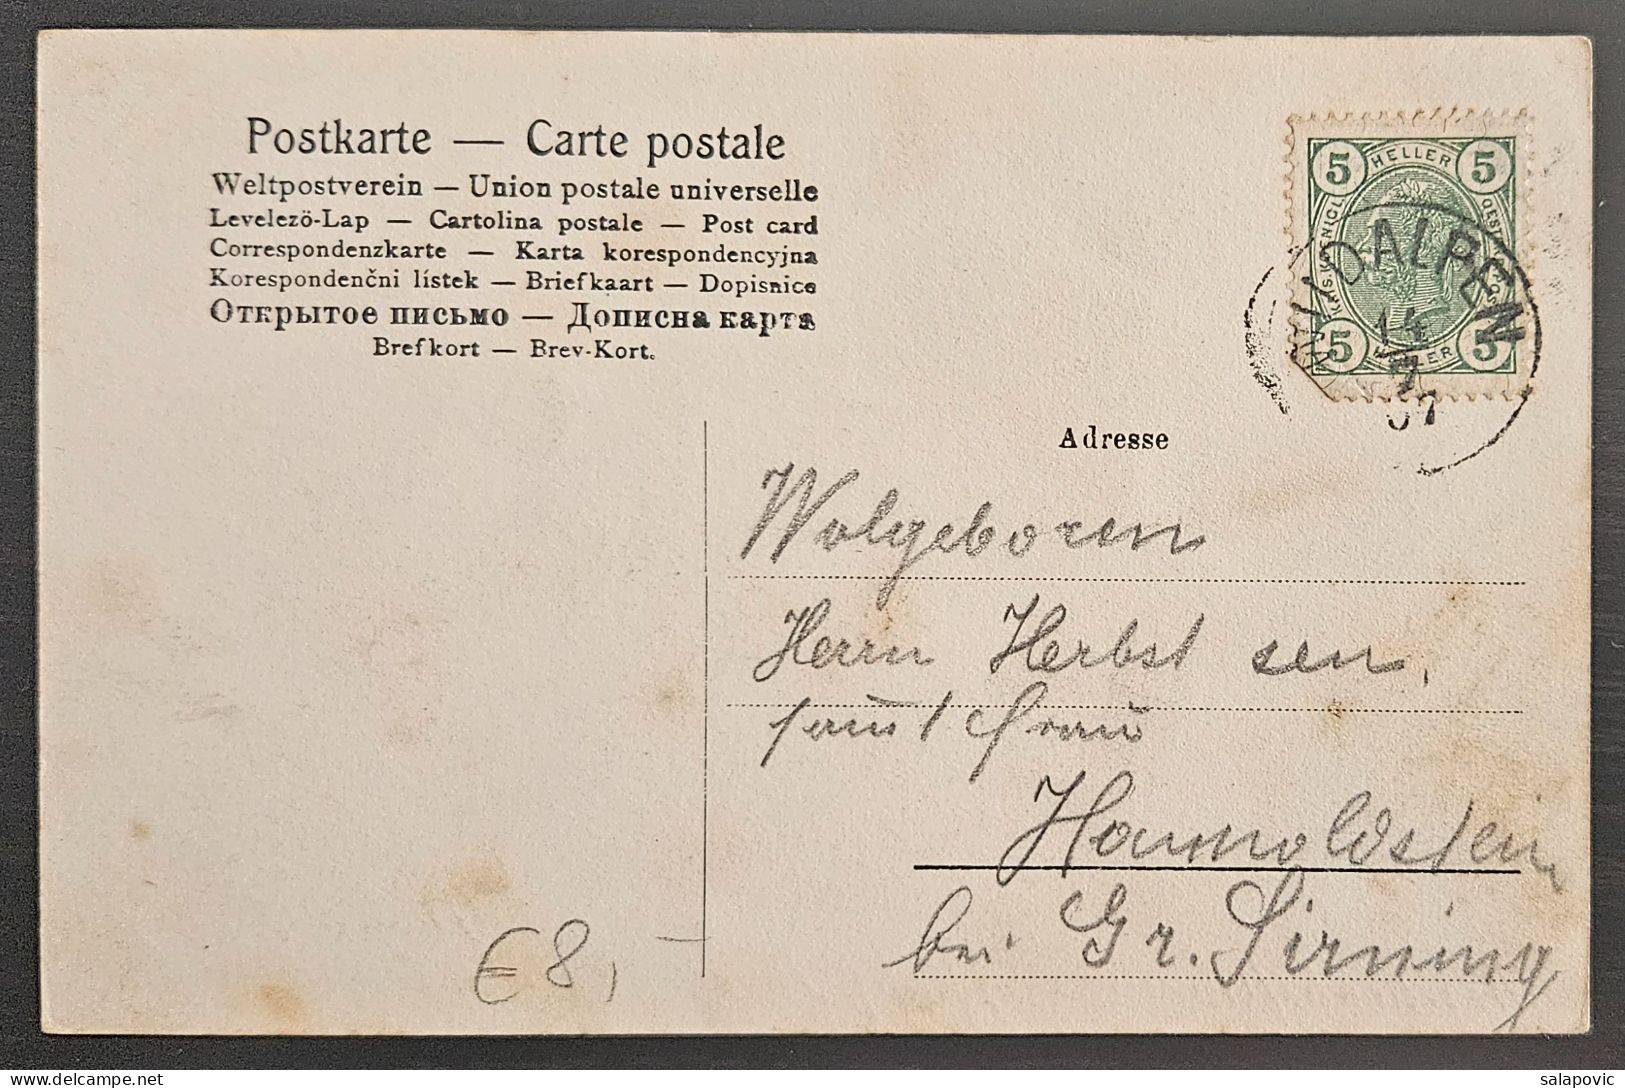 Postkarte — Carte postale
Weltpostverein — Union postale universelle
Levelezö-Lap — Cartolina postale — Post card
Correspondenzkarte — Karta korespondencyjna
Korespondenční lístek — Briefkaart — Dopisnice
Открытое письмо — Дописна карта
Brefkort — Brev-Kort.
5 HELLER 5
KAIS. KÖNIGL. OESTERR. POST
5 HELLER 5
WILDALPEN
14
7
07
Adresse
Wolgeboren
Herrn Herbst sen.
samt Frau
bei Gr. Sirning
€8,-
delcampe.net
salapovic